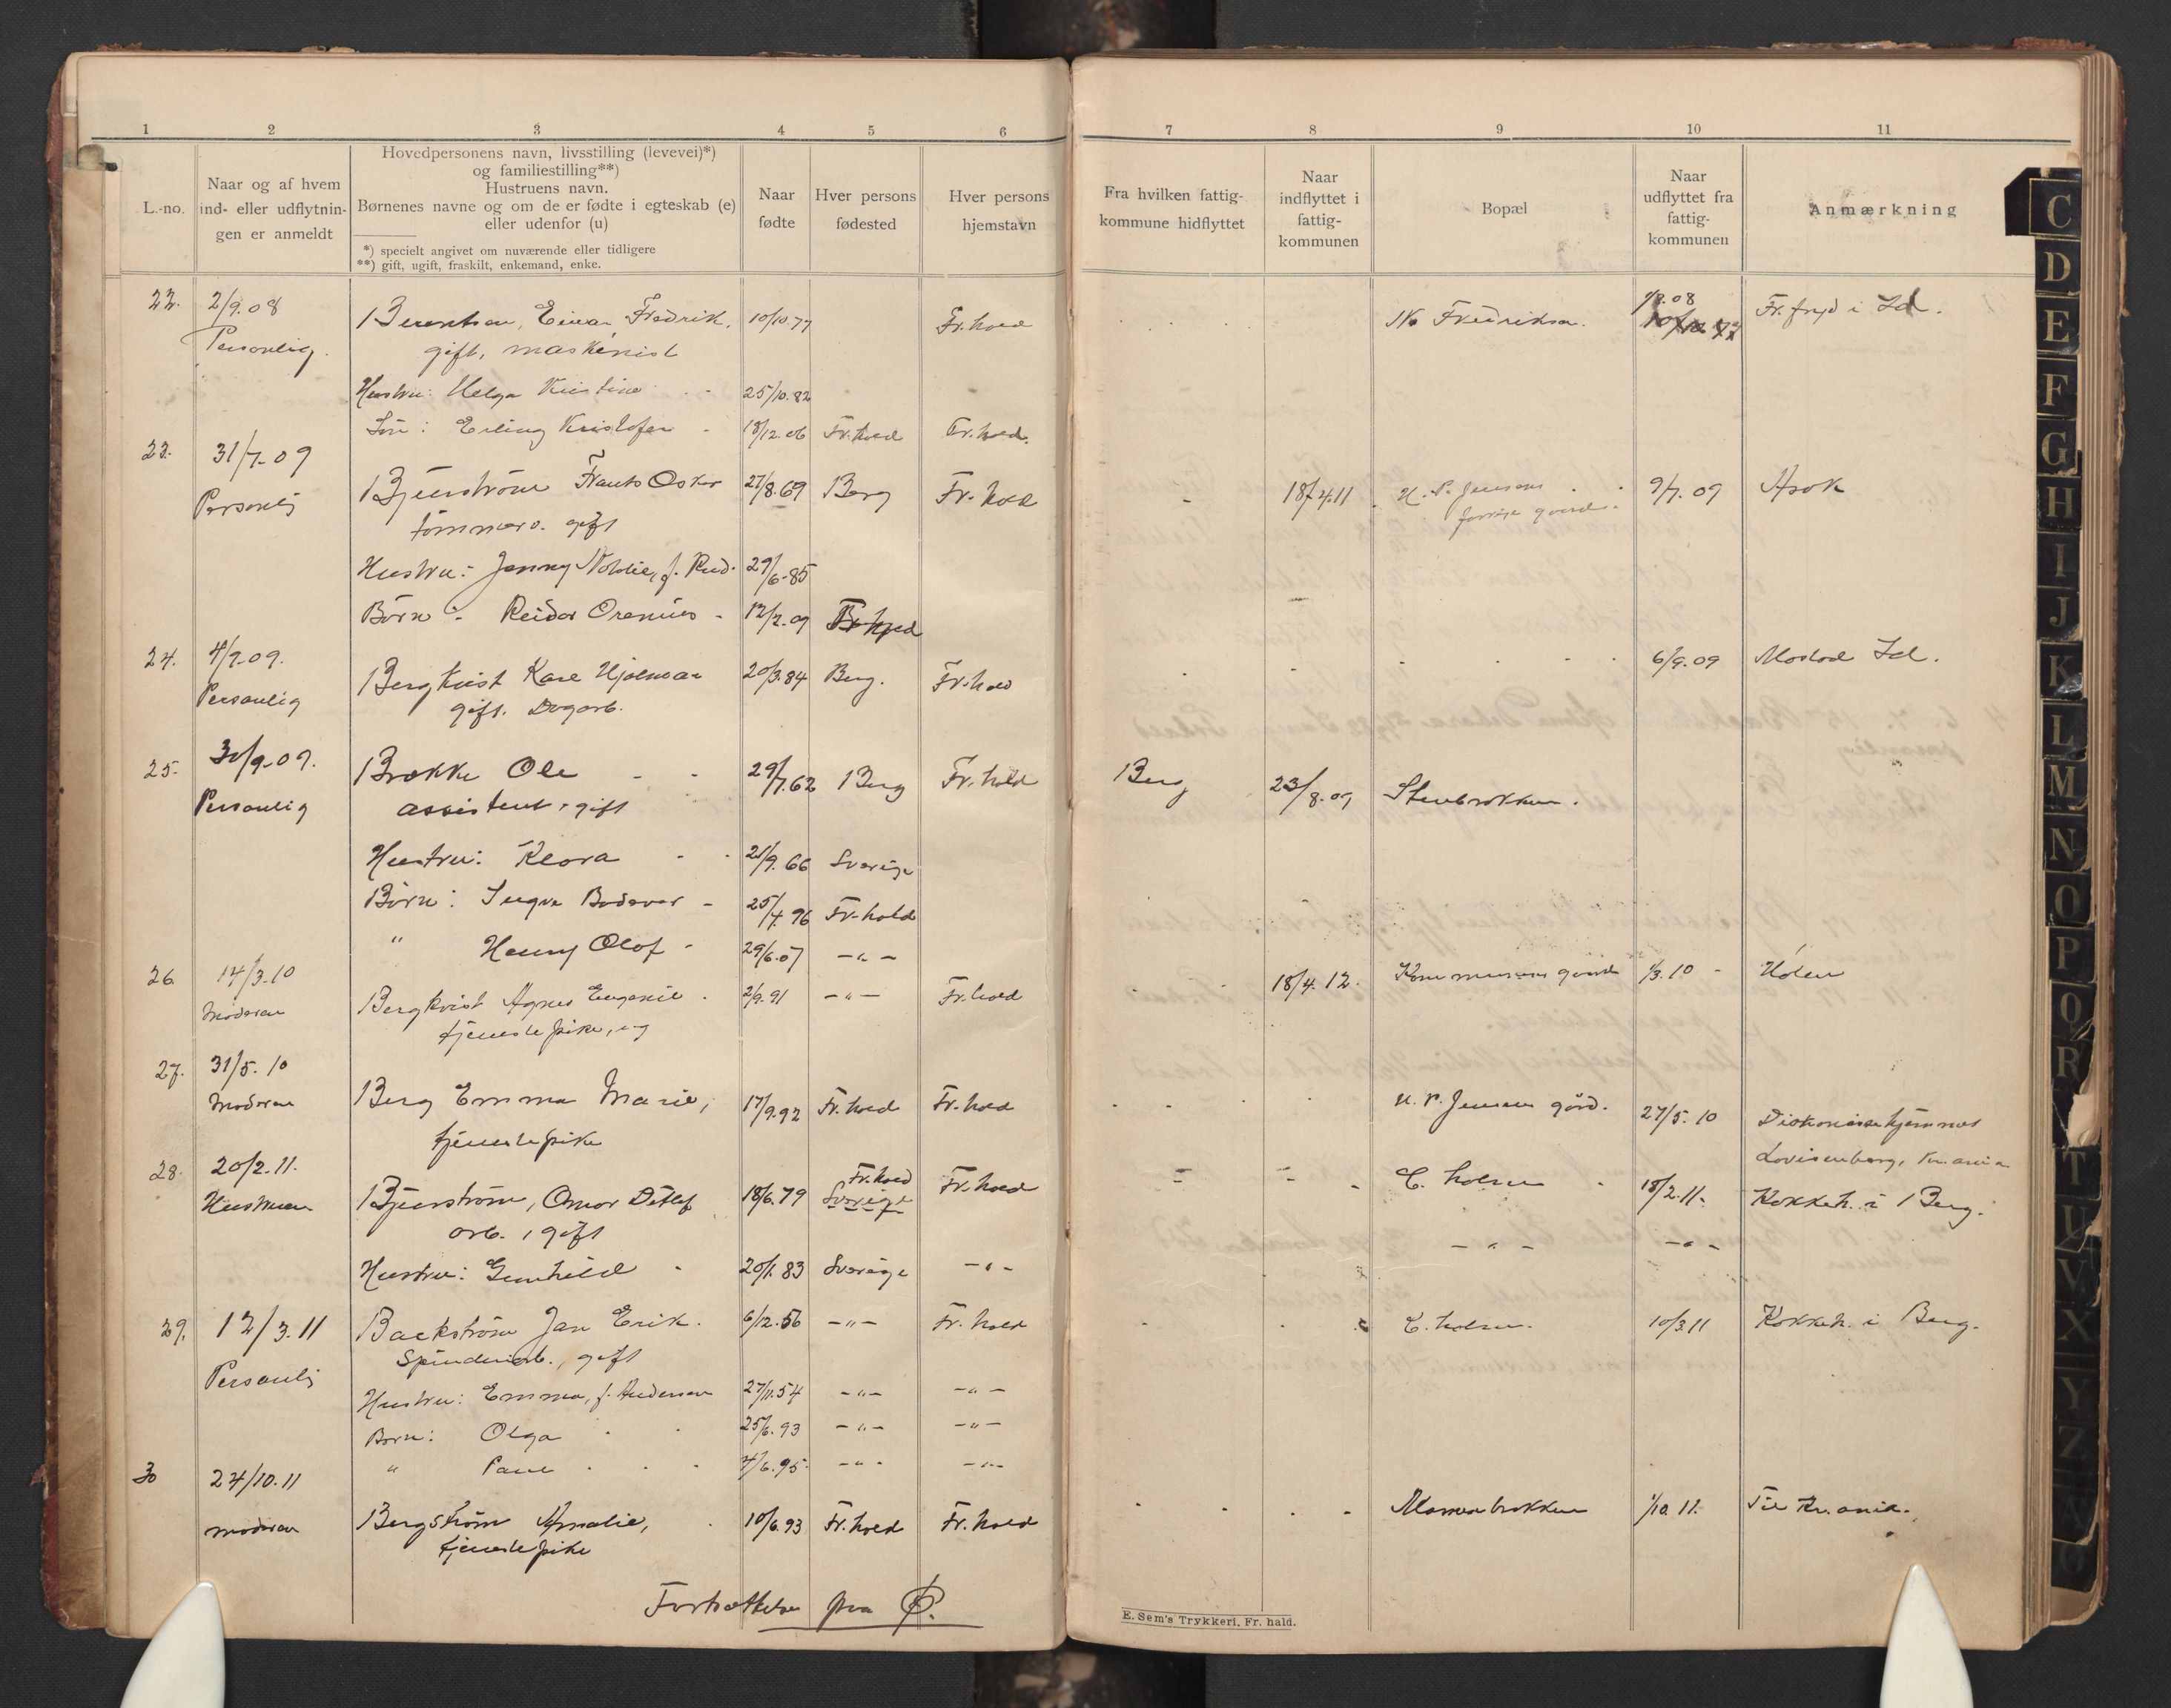 1 2 3 4 5 6 7 8 9 10 11
L.-no.
Naar og af hvem
ind- eller udflytnin-
gen er anmeldt
Hovedpersonens navn, livsstilling (levevei)*)
og familiestilling**)
Hustruens navn.
Børnenes navne og om de er fødte i egteskab (e)
eller udenfor (u)
*) specielt angivet om nuværende eller tidligere
**) gift, ugift, fraskilt, enkemand, enke.
Naar
fødte
Hver persons
fødested
Hver persons
hjemstavn
Fra hvilken fattig-
kommune hidflyttet
Naar
indflyttet i
fattig-
kommunen
Bopæl
Naar
udflyttet fra
fattig-
kommunen
Anmærkning
22. 2/9.08 Berentsen, Einar Fredrik, 10/10.77 Fr.hald No Fredriksen. 1/9.08 i Id.
Personlig. gift, maskinist
Hustru: Helga Kristine 25/10.82
Søn: Erling Kristofer 18/12.06 Fr.hald Fr.hald.
23. 31/7-09 Bjernström Frants Oskar 27/8.69 Berg Fr.hald 18/4.11 N. P. Jensens 9/7.09 Asak
Personlig tømmerv. gift gaard.
Hustru: Jenny f. Rud. 29/6-85
Børn: Reidar 12/2.09 Fr.hald
24. 4/9-09. Bergkvist Karl Hjalmar 20/3.84 Berg. Fr.hald 6/9.09 Id.
Personlig gift. Dagarb.
25. 30/9-09. Brække Ole 29/7.62 Berg Fr.hald Berg 23/8.09 Stenbrækken.
Personlig assistent, gift
Hustru: Klara 21/9.66 Sverige
Børn: Ingva 25/4.96 Fr-hald
" Henry Olof 29/6.07 -"-
26 14/3.10 Bergkvist Agnes Eugenie 2/9.91 -"- Fr.hald 18/4.12. Kommunens gaard 1/3.10 Hölen
Moderen tjenestepike, ug
27. 31/5.10 Berg Emma Marie, 17/9.92 Fr.hald Fr.hald N. P. Jensens gård. 27/5.10 Diakonissehjemmet
Moderen tjenestepike Lovisenberg, Kr.ania
28. 20/2.11. Bjernström, Omar Detlef 18/6.79 Fr.hald Sverige Fr.hald C. holsen 18/2.11. Kokkeh. i Berg.
Hustruen arb., gift
Hustru: Gunhild 20/1.83 Sverige -"- -"- -"-
29. 12/3.11 Backström Jan Erik. 6/12.56 -"- Fr.hald C. holsen. 10/3.11 Kokkeh. i Berg.
Personlig Spinderiarb., gift
Hustru: Emma, f. Andersen 27/11.54 -"- -"-
Børn: Olga 25/6.93 -"- -"-
" Paul 4/6.95. -"- -"-
30 24/10.11 Bergström Amalie, 10/6.93 Fr.hald Fr.hald 1/10.11. Til Kr.ania.
moderen tjenestepike
Fortsættelse paa
E. Sem's Trykkeri, Fr. hald.
C
D
E
F
G
H
I
J
K
L
M
N
O
P
Q
R
T
U
V
X
Y
Z